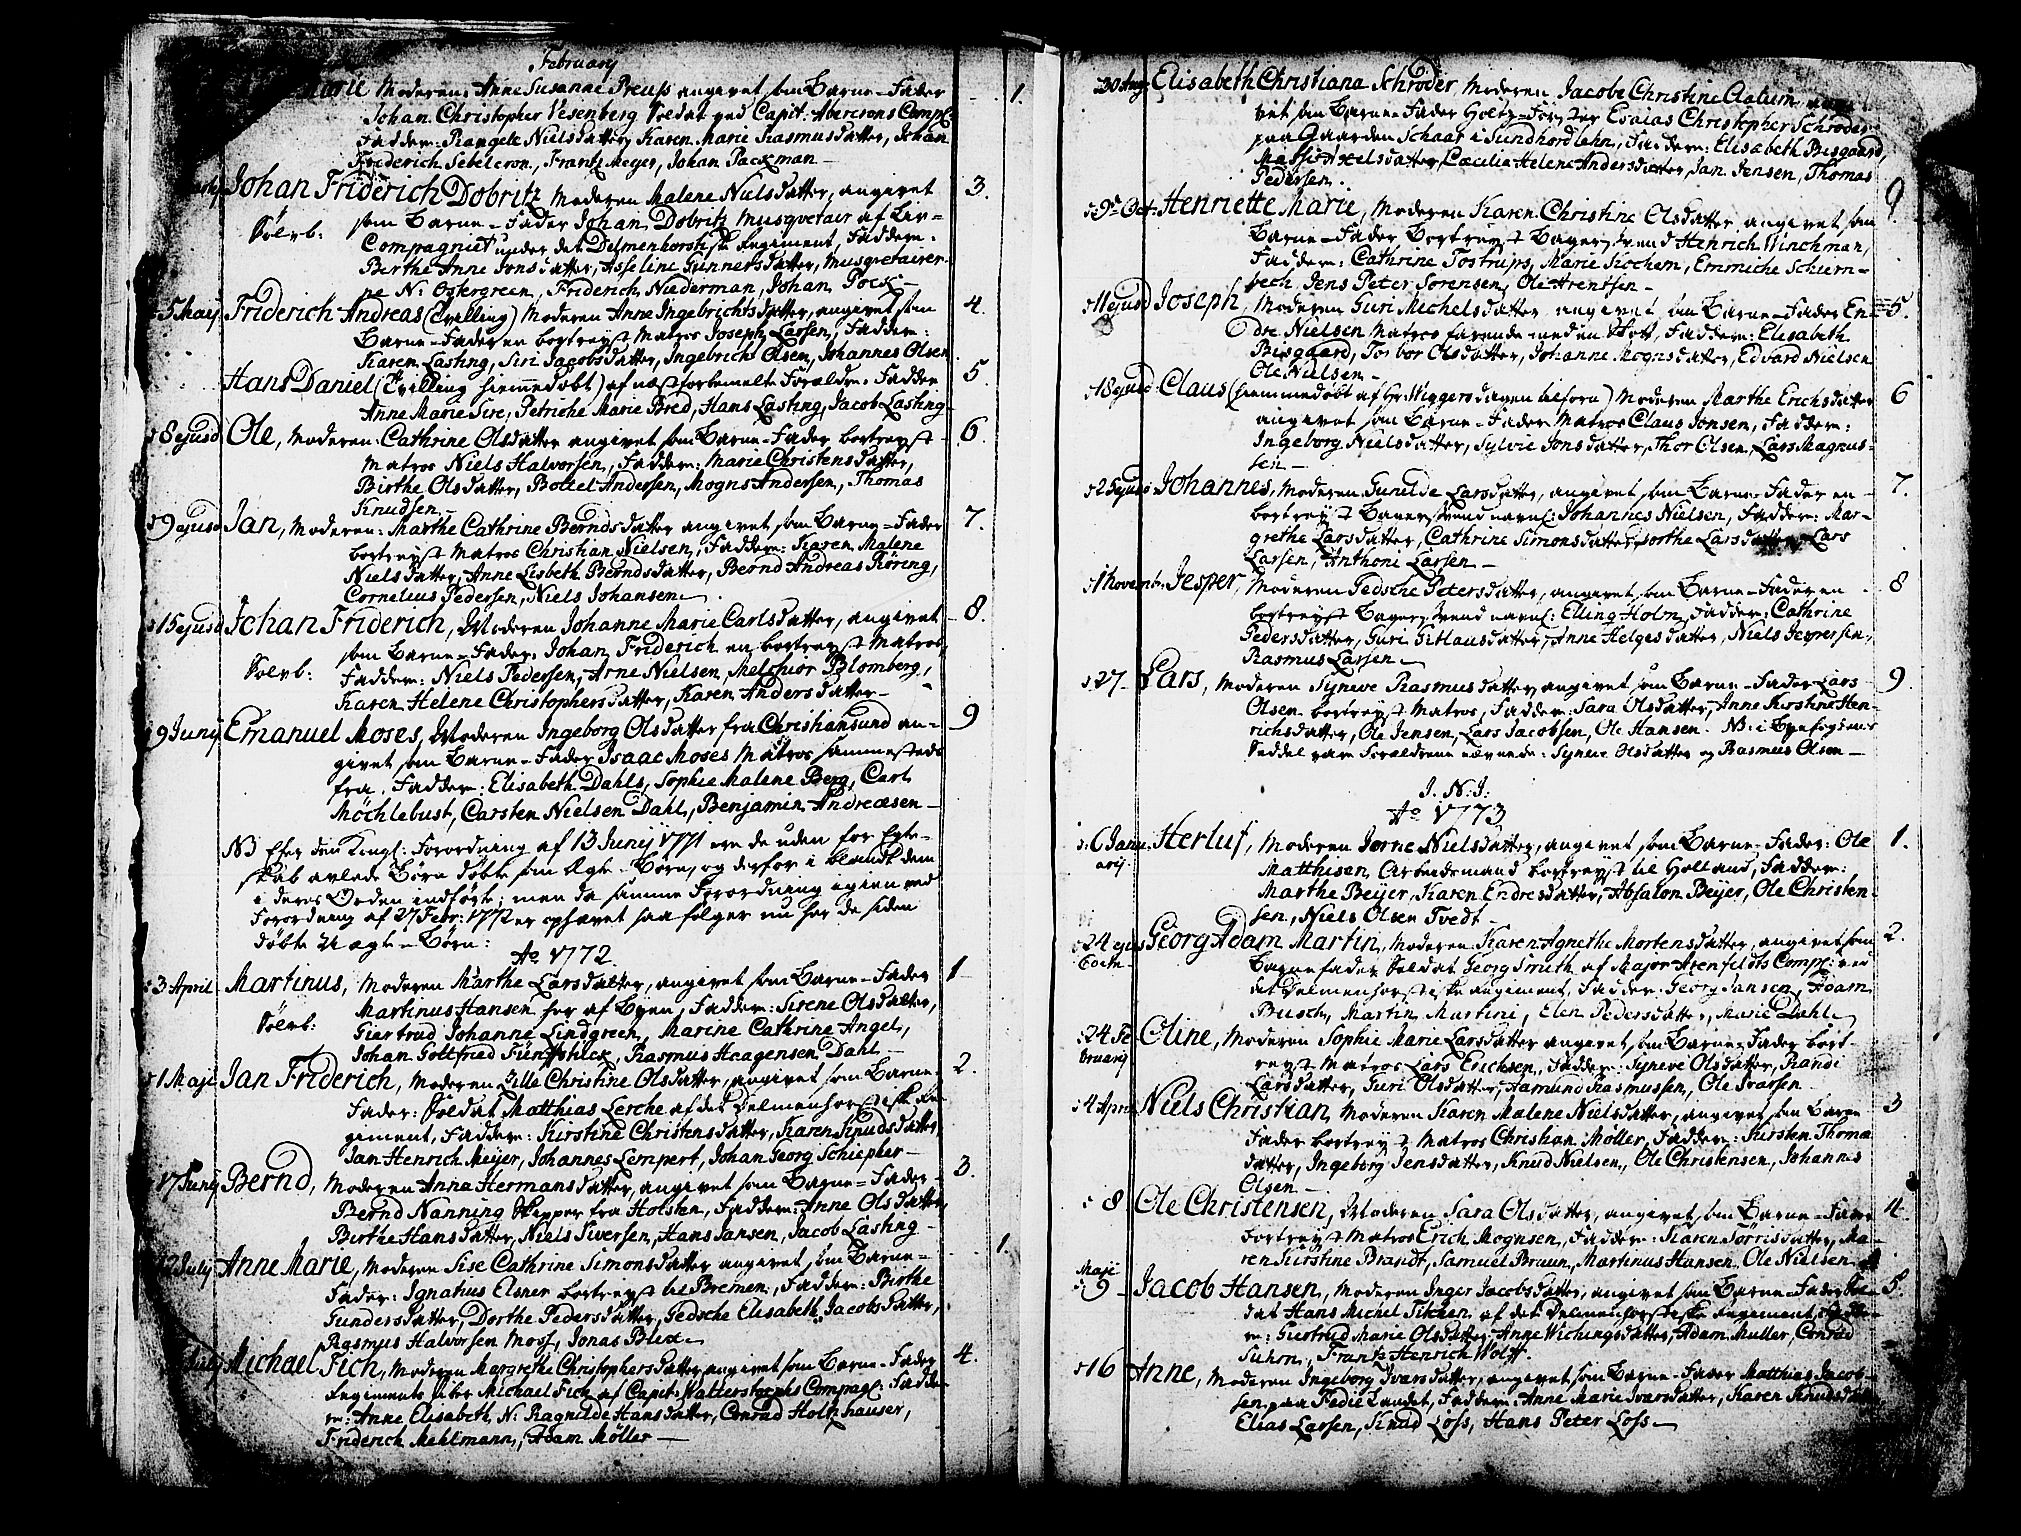 February
Marie Moderen: Anne Susanne Preuss angivet som Barne-Fader
Johan Christopher Vesenberg Soldat ved Capit: Abercrons Comp:
Faddere: Rangele Nielsdatter, Karen Marie Rasmusdatter, Johan
Friderich Sebeleron, Frantz Meyer, Johan Packman
3.
Johan Friderich Dobritz Moderen Malene Nielsdatter, angivet
som Barne-Fader Johan Dobritz Musqvetair af Liv-
Compagniet under det Delmenhorstiske Regiment, Faddere:
Birthe Anne Jonsdatter, Asseline Gunnersdatter, Musqvetairer-
ne N: Ostergreen, Friderich Niederman, Johan Pock
5 Maij Friderich Andreas (Tvilling) Moderen Anne Ingebrichtsdatter, angivet som 4.
Barne-Faderen bortreyst Matros Joseph Larsen, Faddere:
Karen Lasting, Siri Jacobsdatter, Ingebricht Olsen, Johannes Olsen
Hans Daniel (Tvilling hiemmedøbt) af næstforbemelte Forældre. Faddere 5.
Anne Marie Sire, Petriche Marie Bred, Hans Lasting, Jacob Lasting
8 ejusd Ole, Moderen: Cathrine Olsdatter angivet som Barne-Fader bortreyst 6.
Matros Niels Halvorsen, Faddere: Marie Christensdatter,
Birthe Olsdatter, Bottel Andersen, Mogns Andersen, Thomas
Knudsen
9 ejusd Jan, Moderen: Marthe Cathrine Berndsdatter angivet som Barne-Fader 7.
bortreyst Matros Christian Nielsen, Faddere: Karen Malene
Nielsdatter, Anne Lisbeth Berndsdatter, Bernd Andreas Køring,
Cornelius Pedersen, Niels Johansen
15 ejusd Johan Friderich, Moderen Johanne Marie Carlsdatter, angivet 8.
som Barne-Fader, Johan Friderich en bortreyst Matros,
Faddere: Niels Pedersen, Arne Nielsen, Melchior Blomberg,
Karen Helene Christophersdatter, Karen Andersdatter
9 Junij Emanuel Moses, Moderen Ingeborg Olsdatter fra Christiansund an- 9
givet som Barne-Fader Isaac Moses Matros sammesteds
fra. Faddere: Elisabeth Dahls, Sophie Malene Berg, Carl
Möchlebust, Carsten Nielsen Dahl, Benjamin Andreæsen
NB Efter den Kongl: Forordning af 13 Junij 1771 ere de uden for Egte-
skab avlede Børn døbte som Ægte-Børn, og derfor i blandt dem
i deres Orden indførte; men da samme Forordning igien ved
Forordning af 27 Febr: 1772 er ophævet saa følger nu her de siden
døbte Uægte-Børn:
Ao 1772.
3 April Martinus, Moderen Marthe Larsdatter, angivet som Barne-Fader 1
Martinus Hansen her af Byen, Faddere: Sirene Olsdatter,
Giertrud Johanne Lindgreen, Marine Cathrine Angel,
Johan Gottfried Fünfstück, Rasmus Haagensen Dahl
1 Maji Jan Friderich, Moderen Zille Christine Olsdatter, angivet som Barne- 2.
Fader: Soldat Matthias Lerche af det Delmenhorstiske Re-
giment, Faddere: Kirstine Christensdatter, Karen Knudsdatter,
Jan Henrich Meyer, Johannes Lempert, Johan Georg Schiepher
17 Junij Bernd, Moderen Anna Hermansdatter, angivet som Barne-Fader 3.
Bernd Nanning Skipper fra Holsten, Faddere: Anne Olsdatter,
Birthe Hansdatter, Niels Siversen, Hans Jansen, Jacob Lasting
12 July Anne Marie, Moderen Sise Cathrine Simonsdatter angivet som Barne- 1.
Fader: Ignatius Elsner bortreyst til Bremen, Faddere: Birthe
Gundersdatter, Dorthe Pedersdatter, Gedsche Elisabeth Jacobsdatter,
Rasmus Halvorsen Moss, Jonas Blix
July Michael Fich, Moderen Margrethe Christophersdatter, angivet som Barne-Fader 4.
Regiments Michael Fich af Capit: Compagn: Fadde-
re: Anne Elisabeth, N: Ragnilde Hansdatter, Conrad Holtzhauser,
Friderich Mehlmann, Adam Møller
30 Aug Elisabeth Christiana Schrøder Moderen Jacobe Christine Aatum
vet som Barne-Fader Holtz-Forster Esaias Christopher Schrøder
paa Gaarden Schaar i Sundhordlehn, Faddere: Elisabeth Bisgaard,
Mattie Nielsdatter, Cæcilia Helene Andersdatter, Jan Jensen, Thomas
Pedersen.
9 Oct. Henriette Marie, Moderen Karen Christine Olsdatter angivet som 9
Barne-Fader bortreyst Bagersvend Henrich Winchman,
Faddere: Cathrine Tostrups, Marie Kochem, Emmiche Schiern-
bech, Jens Peter Sørensen, Ole Arentsen
11 ejusd Joseph, Moderen Guri Michelsdatter angivet som Barne-Fader En- 5.
dre Nielsen Matros farende med en Skott, Faddere: Elisabeth
Bisgaard, Torbor Olsdatter, Johanne Mognsdatter, Edvard Nielsen
Ole Nielsen
18 ejusd Claus (hiemmedøbt af Hr Wiggers dagen tilforn) Moderen Marthe Erichsdatter 6
angivet som Barne-Fader Matros Claus Jonsen, Faddere:
Ingeborg Nielsdatter, Sylvie Jonsdatter, Thor Olsen, Lars Magnus-
sen
25 ejusd Johannes, Moderen Gunilde Larsdatter, angivet som Barne-Fader en 7.
bortreyst Bagersvend navnl: Johannes Nielsen, Faddere: Mar-
grethe Larsdatter, Cathrine Simonsdatter, Dorthe Larsdatter, Lars
Larsen, Anthoni Larsen
1 Novembr. Jesper, Moderen Gedsche Petersdatter, angivet som Barne-Fader en 8
bortreyst Bagersvend navnl: Elling Holm, Faddere: Cathrine
Pedersdatter, Guri Gitlausdatter, Anne Helgesdatter, Niels Jespersen,
Rasmus Larsen
27 Lars, Moderen Synneve Rasmusdatter, angivet som Barne-Fader Lars 9.
Olsen bortreyst Matros, Faddere: Sara Olsdatter, Anne Kirstine Hen-
richsdatter, Ole Jensen, Lars Jacobsen, Ole Hansen. NB: i Byefogdens
Seddel vare Forældrene nævnede: Synneve Olsdatter og Rasmus Olsen
I. N. J:
Ao 1773
6 Janu- Herluf, Moderen Jørne Nielsdatter, angivet som Barne-Fader: Ole 1.
arij. Matthisen, Arbeidsmand bortreyst til Holland, Faddere:
Marthe Beyer, Karen Endresdatter, Absalon Beyer, Ole Christen-
sen, Niels Olsen Tvedt
24 ejus Georg Adam Martin, Moderen Karen Agnethe Mortensdatter, angivet som 2.
Barnefader Soldat Georg Smith af Major Arenfeldts Comp: ved
det Delmenhorstiske Regiment, Faddere: Georg Jansen, Adam
Busch, Martin Martini, Elen Pedersdatter, Marie Dahl
24 Fe- Oline, Moderen Sophie Marie Larsdatter angivet som Barne-Fader bort-
bruarij reyst Matros Lars Erichsen, Faddere: Synneve Olsdatter, Randi
Larsdatter, Guri Olsdatter, Aamund Rasmussen, Ole Ivarsen
4 April Niels Christian, Moderen Karen Malene Nielsdatter, angivet som Barne- 3
Fader bortreyst Matros Christian Møller, Faddere: Kirsten Thomæ
datter, Ingeborg Jensdatter, Knud Nielsen, Ole Christensen, Johannes
Olsen
8 Ole Christensen, Moderen Sara Olsdatter, angivet som Barne-Fader 4.
bortreyst Matros Erich Mognsen, Faddere: Karen Tørrisdatter, Ma-
ren Kirstine Brandt, Samuel Bruun, Martinus Hansen, Ole Nielsen
Maji
9 Jacob Hansen, Moderen Inger Jacobsdatter, angivet som Barne-Fader Sol- 5.
dat Hans Michel af det Delmenhorstiske Regiment, Fadde-
re: Giertrud Marie Olsdatter, Anne Wichingsdatter, Adam Müller, Conrad
Suhon, Frantz Henrich Wolff.
16 Anne, Moderen Ingeborg Ivarsdatter, angivet som Barne-Fader Matthias Jacob-
sen paa Fedie Landet, Faddere: Anne Marie Ivarsdatter, Karen Knudsdatter
Elias Larsen, Knud Loss, Hans Peter Loss